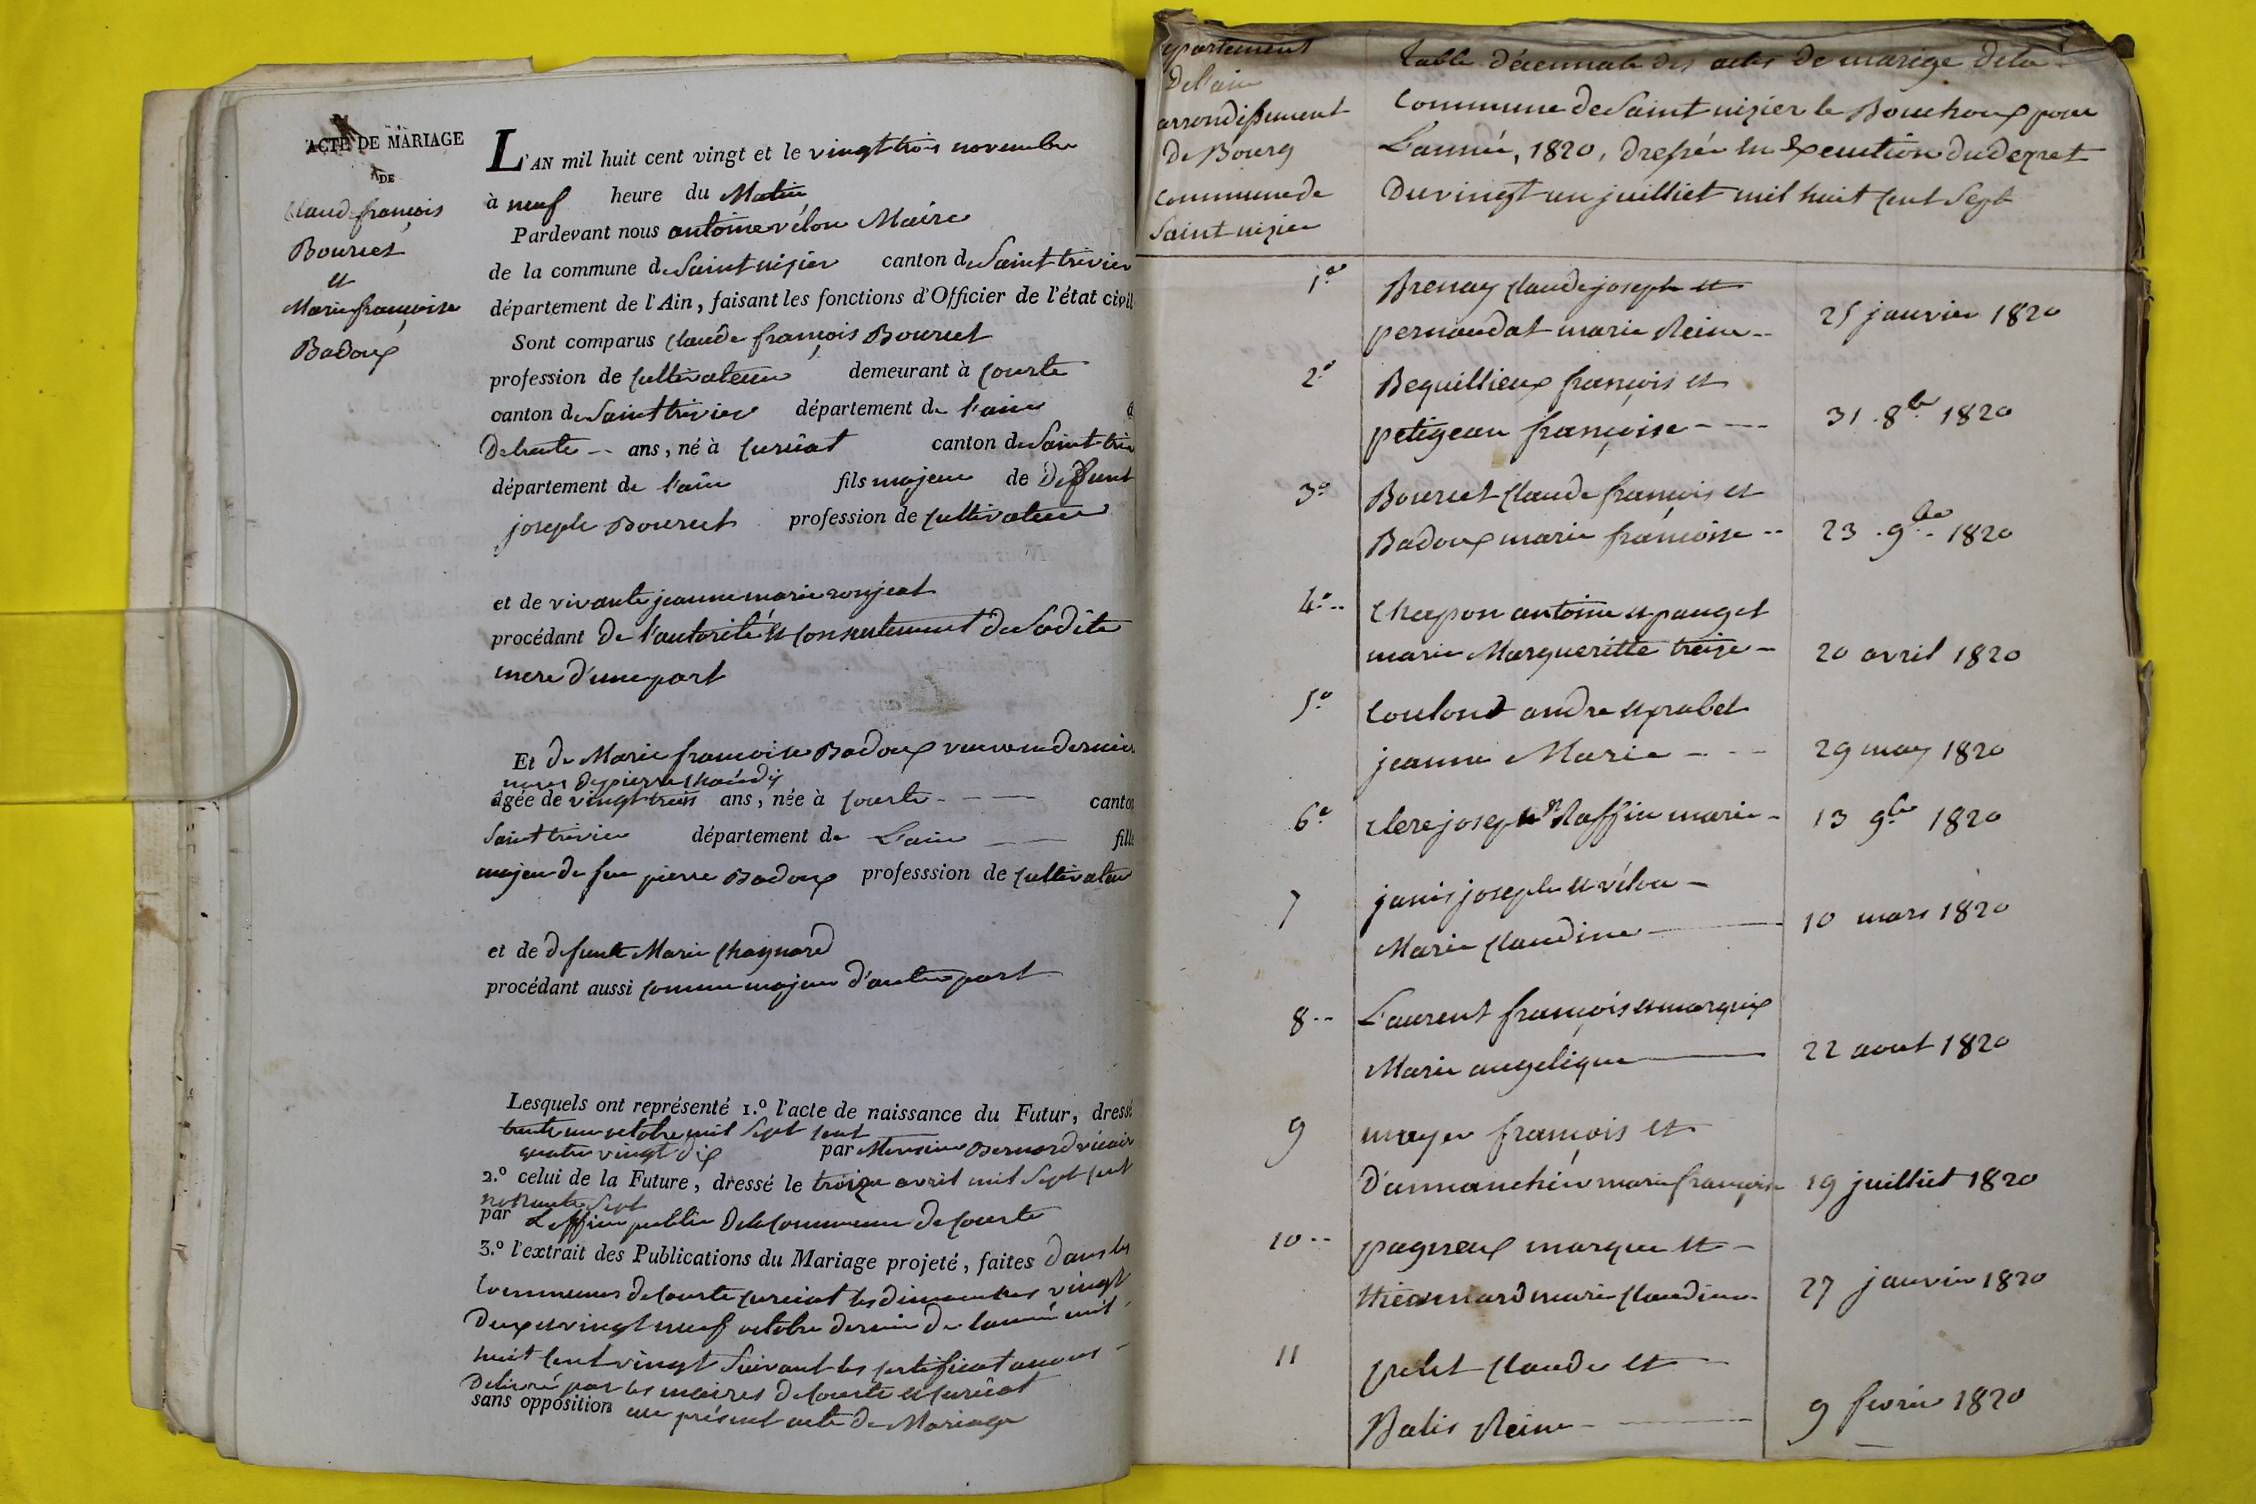 ACTE DE MARIAGE
DE
Claude françois
Bourcet
et
Marie françoise
Badoux
L'AN mil huit cent vingt et le vingt trois novembre
à neuf heure du Matin
Pardevant nous antoine vélon Maire
de la commune de Saint nizier canton de Saint trivier
département de l'Ain, faisant les fonctions d'Officier de l'état civil
Sont comparus Claude françois Bourcet
profession de Cultivateur demeurant à Courte
canton de Saint trivier département de l'ain
De trente -- ans, né à Curciat canton de Saint triv
département de l'ain fils majeur de Deffunt
joseph Bourcet profession de Cultivateur
et de vivante jeanne marie ronjeat
procédant De l'autorité et Consentement de Sadite
mere d'une part
Et de Marie francoise Badoux veuve en dernier
noces De pierre
âgée de vingt trois ans, née à Courte canton
Saint trivier département de L'ain fille
majeur de feu pierre Badoux professsion de Cultivateur
et de defunte Marie Chagnard
procédant aussi Comme majeur d'autre part
Lesquels ont représenté 1.º l'acte de naissance du Futur, dressé
trente un octobre mil Sept Cent
quatre vingt Dix par Monsieur Bernard vicaire
2.º celui de la Future, dressé le troize avril mil Sept Cent
nonante Sept
par L'officier public De la Commune De Courte
3.º l'extrait des Publications du Mariage projeté, faites Dans les
Communes de Courte Curciat les dimanches vingt
Deux et vingt neuf octobre dernier De l'année mil
huit Cent vingt Suivant les Certificat anous
Delivré par les maires De Courte et Curciat
sans opposition au présent acte De Mariage
epartement
De l'ain
arrondissement
De Bourg
Commune de
Saint nizier
table décennale des actes de mariage dela
Commune de Saint nizier le Bouchoux pour
L'année, 1820, dressée en Execution du decret
Du vingt un juilliet mil huit Cent Sept
1º Brenay Claude joseph et
pernaudat marie Reine -- 25 janvier 1820
2º Bequillieux françois et
petigean françoise ---- 31 . 8bre 1820
3º Bourcet Claude françois et
Badoux marie françoise -- 23 . 9bre 1820
4º -- Chapon antoine et pauget
marie Marguerite treize - 20 avril 1820
5º Coulond andre et prabel
jeanne Marie --- 29 may 1820
6º Clere joseph et Raffin marie - 13 9bre 1820
7 janis joseph et vélon -
Marie Claudine 10 mars 1820
8 -- Laurent françois et marquix
Marie angelique 22 aout 1820
9 moyer françois et
D'annanchér marie françoise 19 juilliet 1820
10 -- pagneux marque et -
thiconnard marie Claudine 27 janvier 1820
11 petit Claude et -
Balis Reine - 9 fevrier 1820